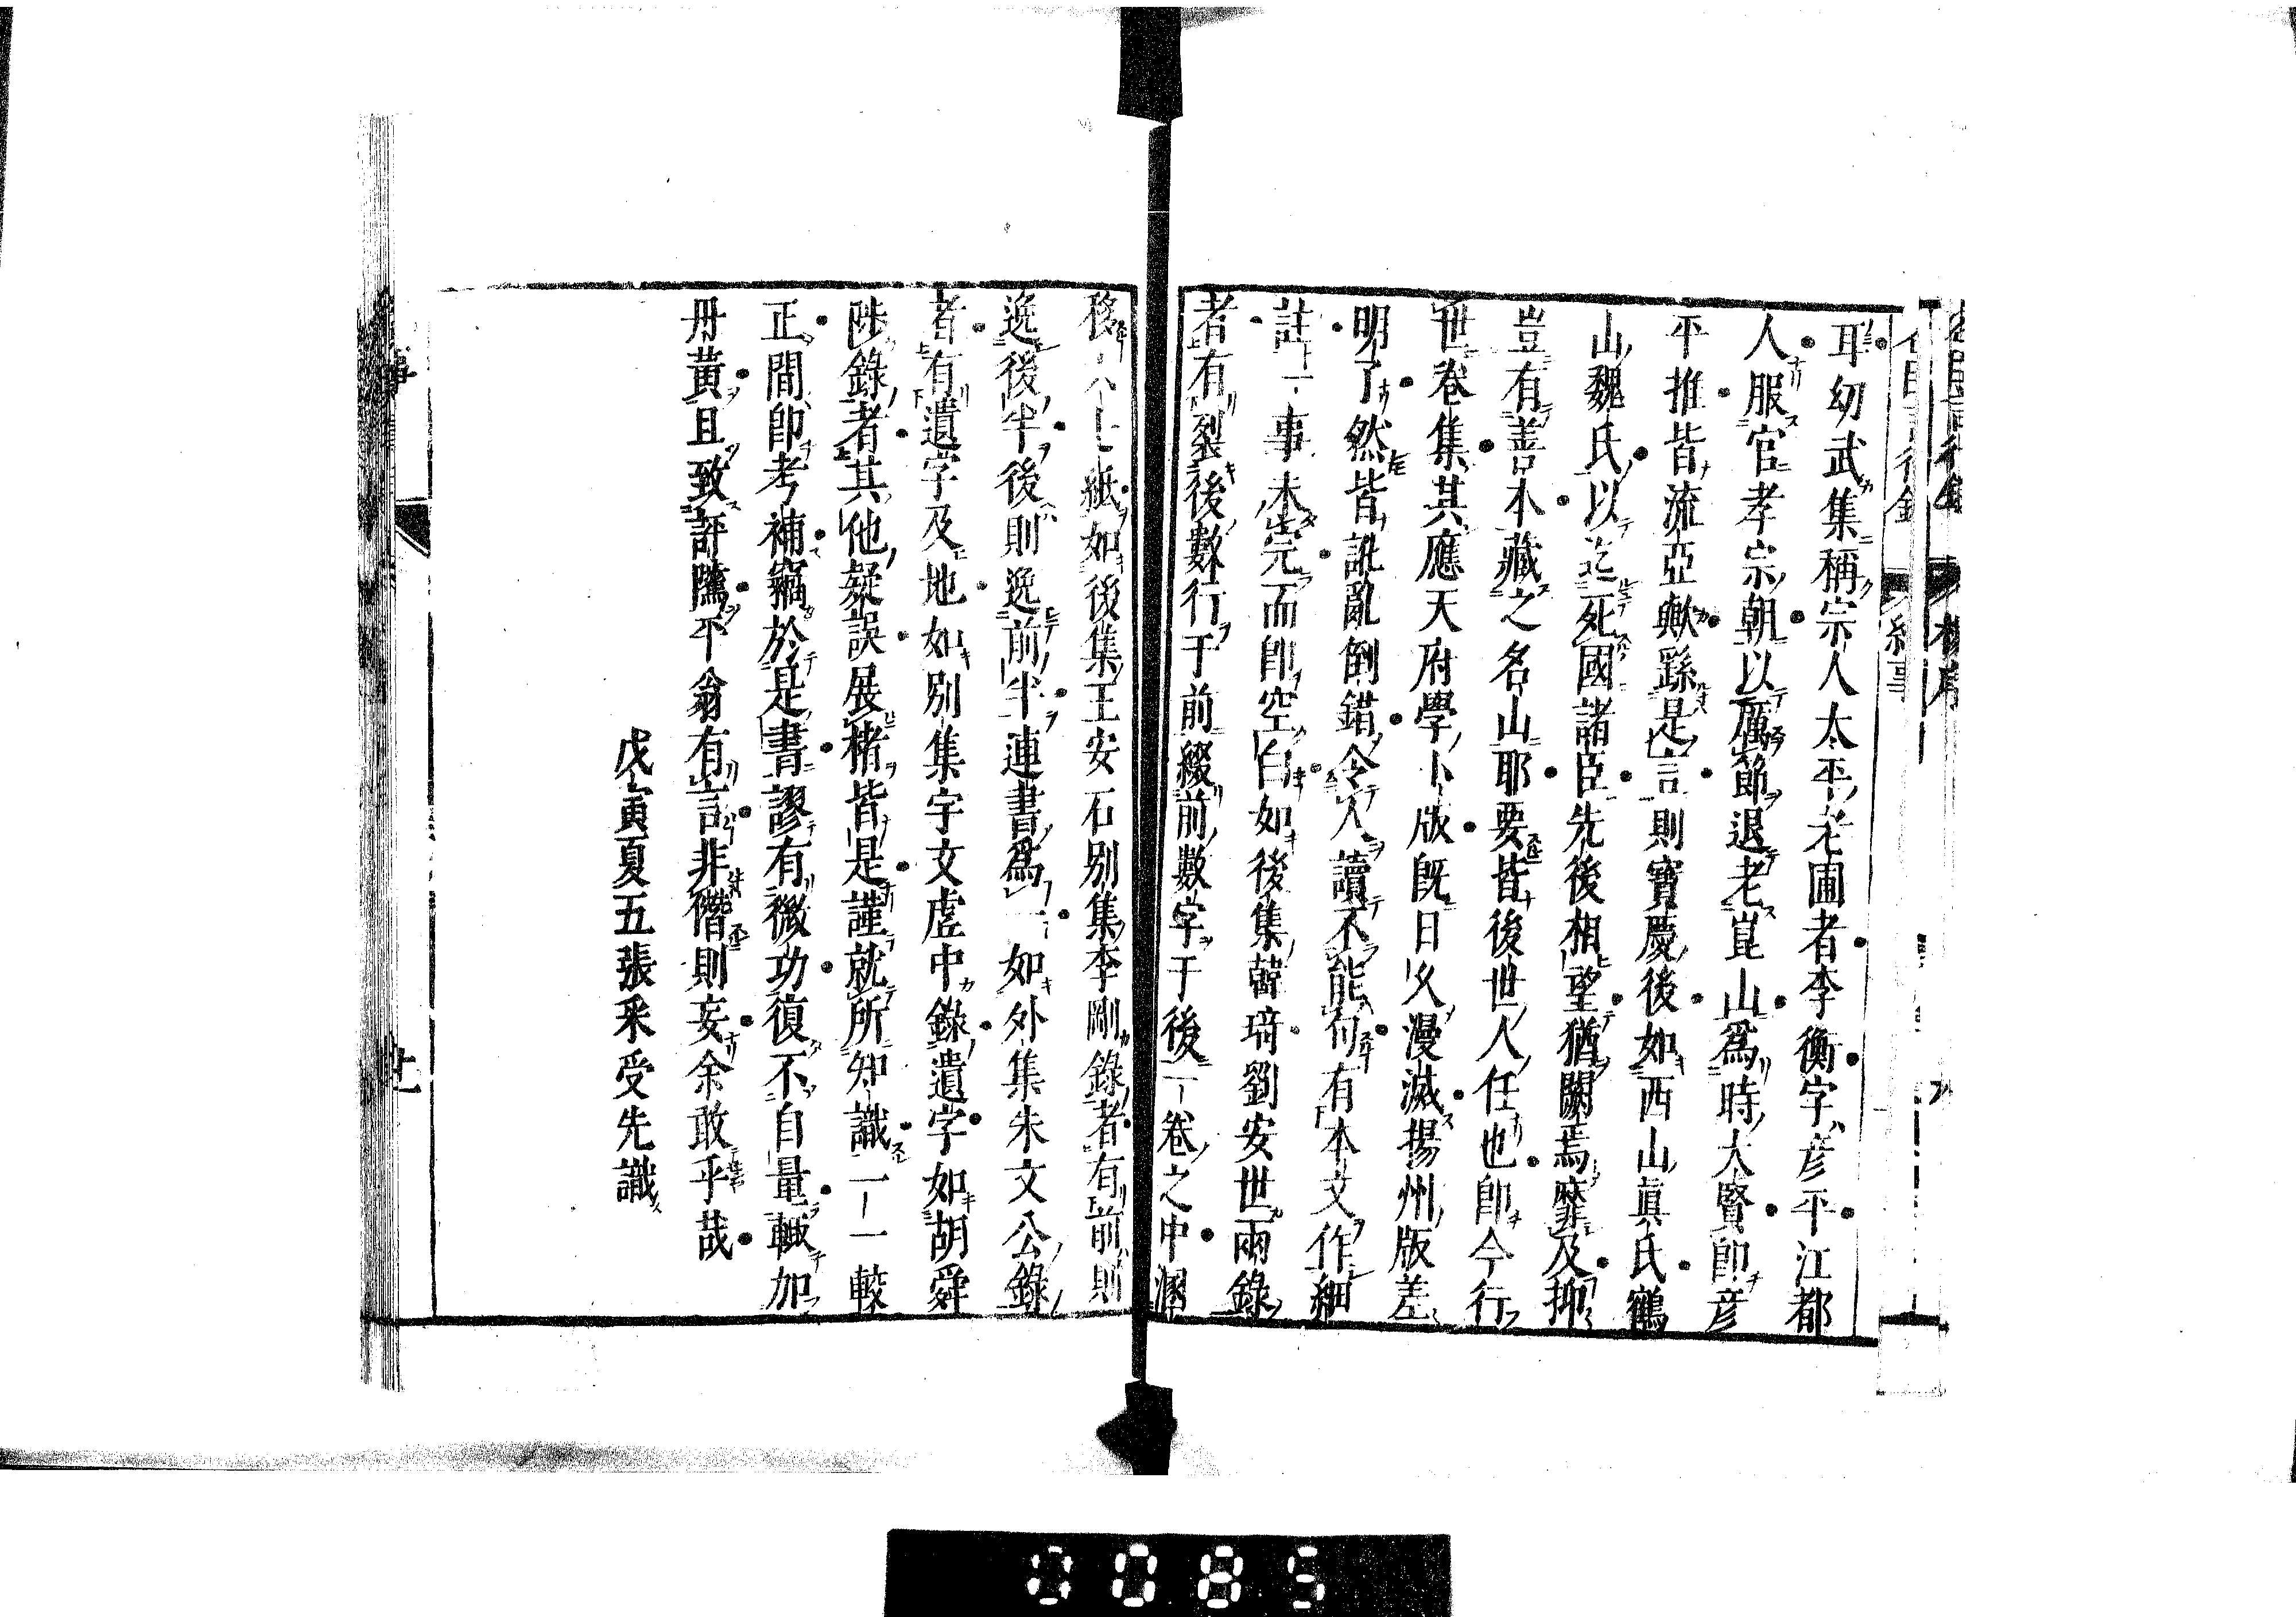 耳幼武集稱宗人太平老圃者李衡字彦平江都
人服官孝宗朝以厲節退老崑山爲時大賢卽彦
平推皆流亞歟繇是言則寶慶後如西山眞氏鶴
山魏氏以迄死國諸臣先後相望猶闕焉靡及抑
豈有善本藏之名山耶要皆後世人任也卽今行
世卷集其應天府學小版旣日久漫滅揚州版差
明了然皆訛亂倒錯令人讀不能句有本文作細
註一事未完而卽空白如後集韓琦劉安世兩錄
者有裂後數行于前綴前數字于後一卷之中溷
移 紙如後集王安石别集李剛錄者有前則
逸後半後則逸前半連書爲一如外集朱文公錄
者有遺字及地如别集宇文虛中錄遺字如胡舜
陟錄者其他疑誤展楮皆是謹就所知識一一較
正間卽考補竊於是書謬有微功復不自量輒加
丹黃且致評隲平翁有言非僭則妄余敢乎哉
戊寅夏五張采受先識
七
0085